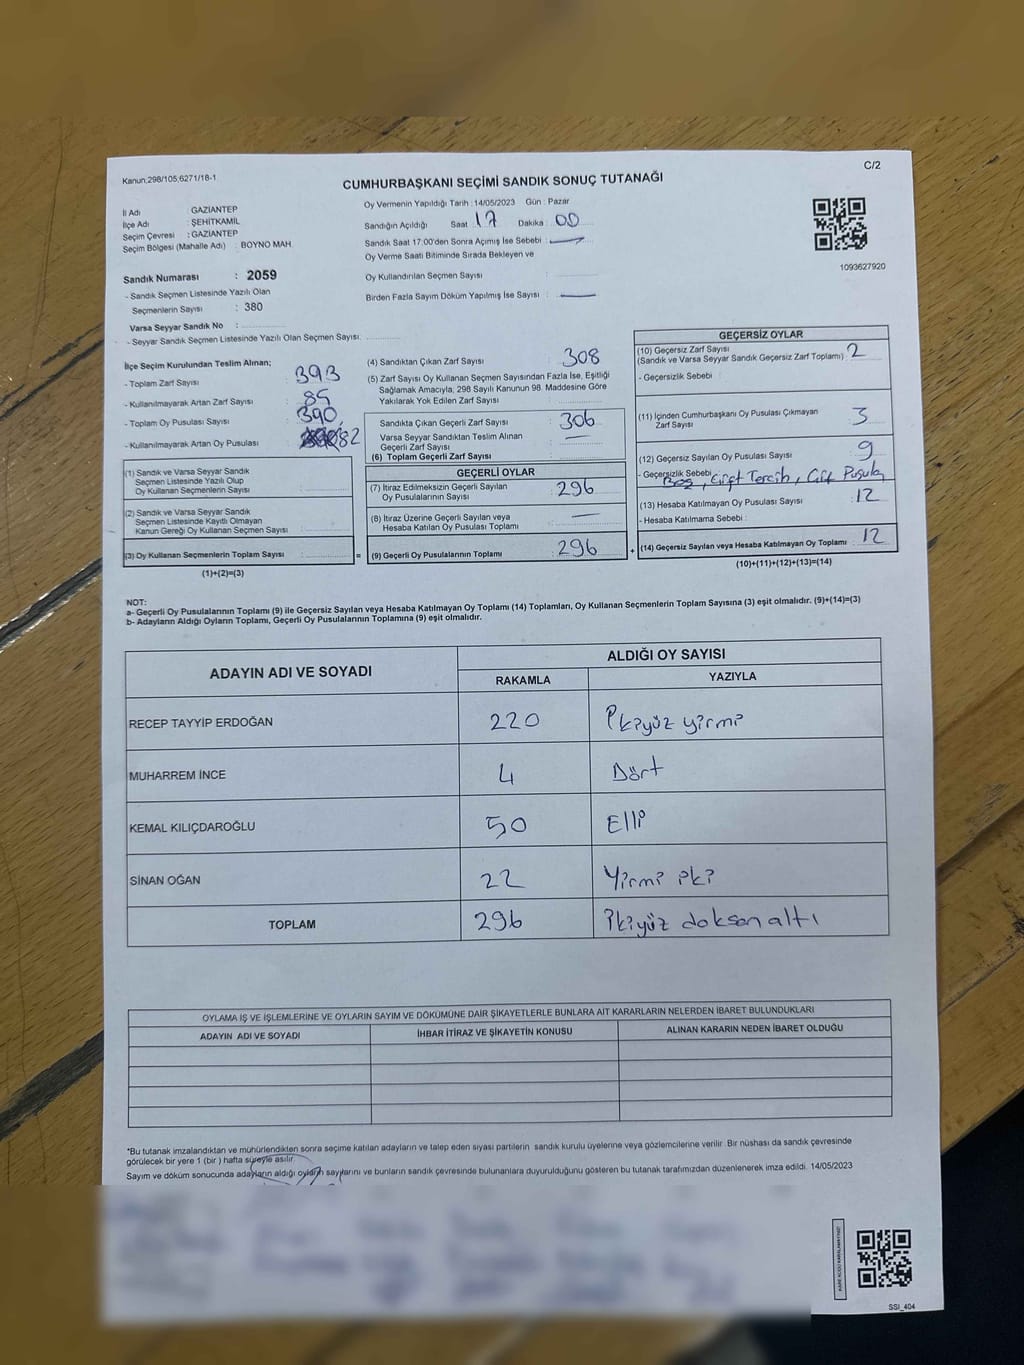 Kanun.298/105.6271/18-1
C/2
CUMHURBAŞKANI SEÇİMİ SANDIK SONUÇ TUTANAĞI
İl Adı : GAZİANTEP
İlçe Adı : ŞEHİTKAMİL
Seçim Çevresi : GAZİANTEP
Seçim Bölgesi (Mahalle Adı) : BOYNO MAH.
Sandık Numarası : 2059
- Sandık Seçmen Listesinde Yazılı Olan
Seçmenlerin Sayısı : 380
Varsa Seyyar Sandık No :
- Seyyar Sandık Seçmen Listesinde Yazılı Olan Seçmen Sayısı:
Oy Vermenin Yapıldığı Tarih : 14/05/2023 Gün : Pazar
Sandığın Açıldığı Saat 17 Dakika : 00
Sandık Saat 17:00'den Sonra Açımış İse Sebebi :
Oy Verme Saati Bitiminde Sırada Bekleyen ve
Oy Kullandırılan Seçmen Sayısı :
Birden Fazla Sayım Döküm Yapılmış İse Sayısı :
1093627920
İlçe Seçim Kurulundan Teslim Alınan;
- Toplam Zarf Sayısı : 393
- Kullanılmayarak Artan Zarf Sayısı : 85
- Toplam Oy Pusulası Sayısı : 390
- Kullanılmayarak Artan Oy Pusulası : 82
(1) Sandık ve Varsa Seyyar Sandık
Seçmen Listesinde Yazılı Olup
Oy Kullanan Seçmenlerin Sayısı :
(2) Sandık ve Varsa Seyyar Sandık
Seçmen Listesinde Kayıtlı Olmayan
Kanun Gereği Oy Kullanan Seçmen Sayısı :
(3) Oy Kullanan Seçmenlerin Toplam Sayısı : =
(1)+(2)=(3)
(4) Sandıktan Çıkan Zarf Sayısı : 308
(5) Zarf Sayısı Oy Kullanan Seçmen Sayısından Fazla İse, Eşitliği
Sağlamak Amacıyla, 298 Sayılı Kanunun 98. Maddesine Göre
Yakılarak Yok Edilen Zarf Sayısı :
Sandıkta Çıkan Geçerli Zarf Sayısı : 306
Varsa Seyyar Sandıktan Teslim Alınan
Geçerli Zarf Sayısı :
(6) Toplam Geçerli Zarf Sayısı :
GEÇERLİ OYLAR
(7) İtiraz Edilmeksizin Geçerli Sayılan
Oy Pusulalarının Sayısı : 296
(8) İtiraz Üzerine Geçerli Sayılan veya
Hesaba Katılan Oy Pusulası Toplamı :
(9) Geçerli Oy Pusulalarının Toplamı : 296 +
GEÇERSİZ OYLAR
(10) Geçersiz Zarf Sayısı
(Sandık ve Varsa Seyyar Sandık Geçersiz Zarf Toplamı) : 2
- Geçersizlik Sebebi :
(11) İçinden Cumhurbaşkanı Oy Pusulası Çıkmayan
Zarf Sayısı : 3
(12) Geçersiz Sayılan Oy Pusulası Sayısı : 9
- Geçersizlik Sebebi : Boş, Çift Tercih, Çift Pusula
(13) Hesaba Katılmayan Oy Pusulası Sayısı : 12
- Hesaba Katılmama Sebebi :
(14) Geçersiz Sayılan veya Hesaba Katılmayan Oy Toplamı : 12
(10)+(11)+(12)+(13)=(14)
NOT:
a- Geçerli Oy Pusulalarının Toplamı (9) ile Geçersiz Sayılan veya Hesaba Katılmayan Oy Toplamı (14) Toplamları, Oy Kullanan Seçmenlerin Toplam Sayısına (3) eşit olmalıdır. (9)+(14)=(3)
b- Adayların Aldığı Oyların Toplamı, Geçerli Oy Pusulalarının Toplamına (9) eşit olmalıdır.
ADAYIN ADI VE SOYADI
ALDIĞI OY SAYISI
RAKAMLA YAZIYLA
RECEP TAYYİP ERDOĞAN 220 İkiyüz yirmi
MUHARREM İNCE 4 Dört
KEMAL KILIÇDAROĞLU 50 Elli
SİNAN OĞAN 22 Yirmi iki
TOPLAM 296 ikiyüz doksan altı
OYLAMA İŞ VE İŞLEMLERİNE VE OYLARIN SAYIM VE DÖKÜMÜNE DAİR ŞİKAYETLERLE BUNLARA AİT KARARLARIN NELERDEN İBARET BULUNDUKLARI
ADAYIN ADI VE SOYADI İHBAR İTİRAZ VE ŞİKAYETİN KONUSU ALINAN KARARIN NEDEN İBARET OLDUĞU
*Bu tutanak imzalandıktan ve mühürlendikten sonra seçime katılan adayların ve talep eden siyasi partilerin sandık kurulu üyelerine veya gözlemcilerine verilir. Bir nüshası da sandık çevresinde
görülecek bir yere 1 (bir) hafta süreyle asılır.
Sayım ve döküm sonucunda adayların aldığı oyların sayılarını ve bunların sandık çevresinde bulunanlara duyurulduğunu gösteren bu tutanak tarafımızdan düzenlenerek imza edildi. 14/05/2023
SSİ_404